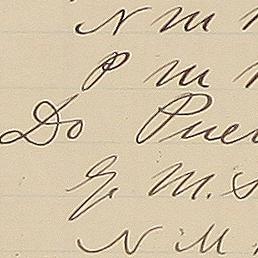 N M
P M
Do Pue
G. M. S
N. M